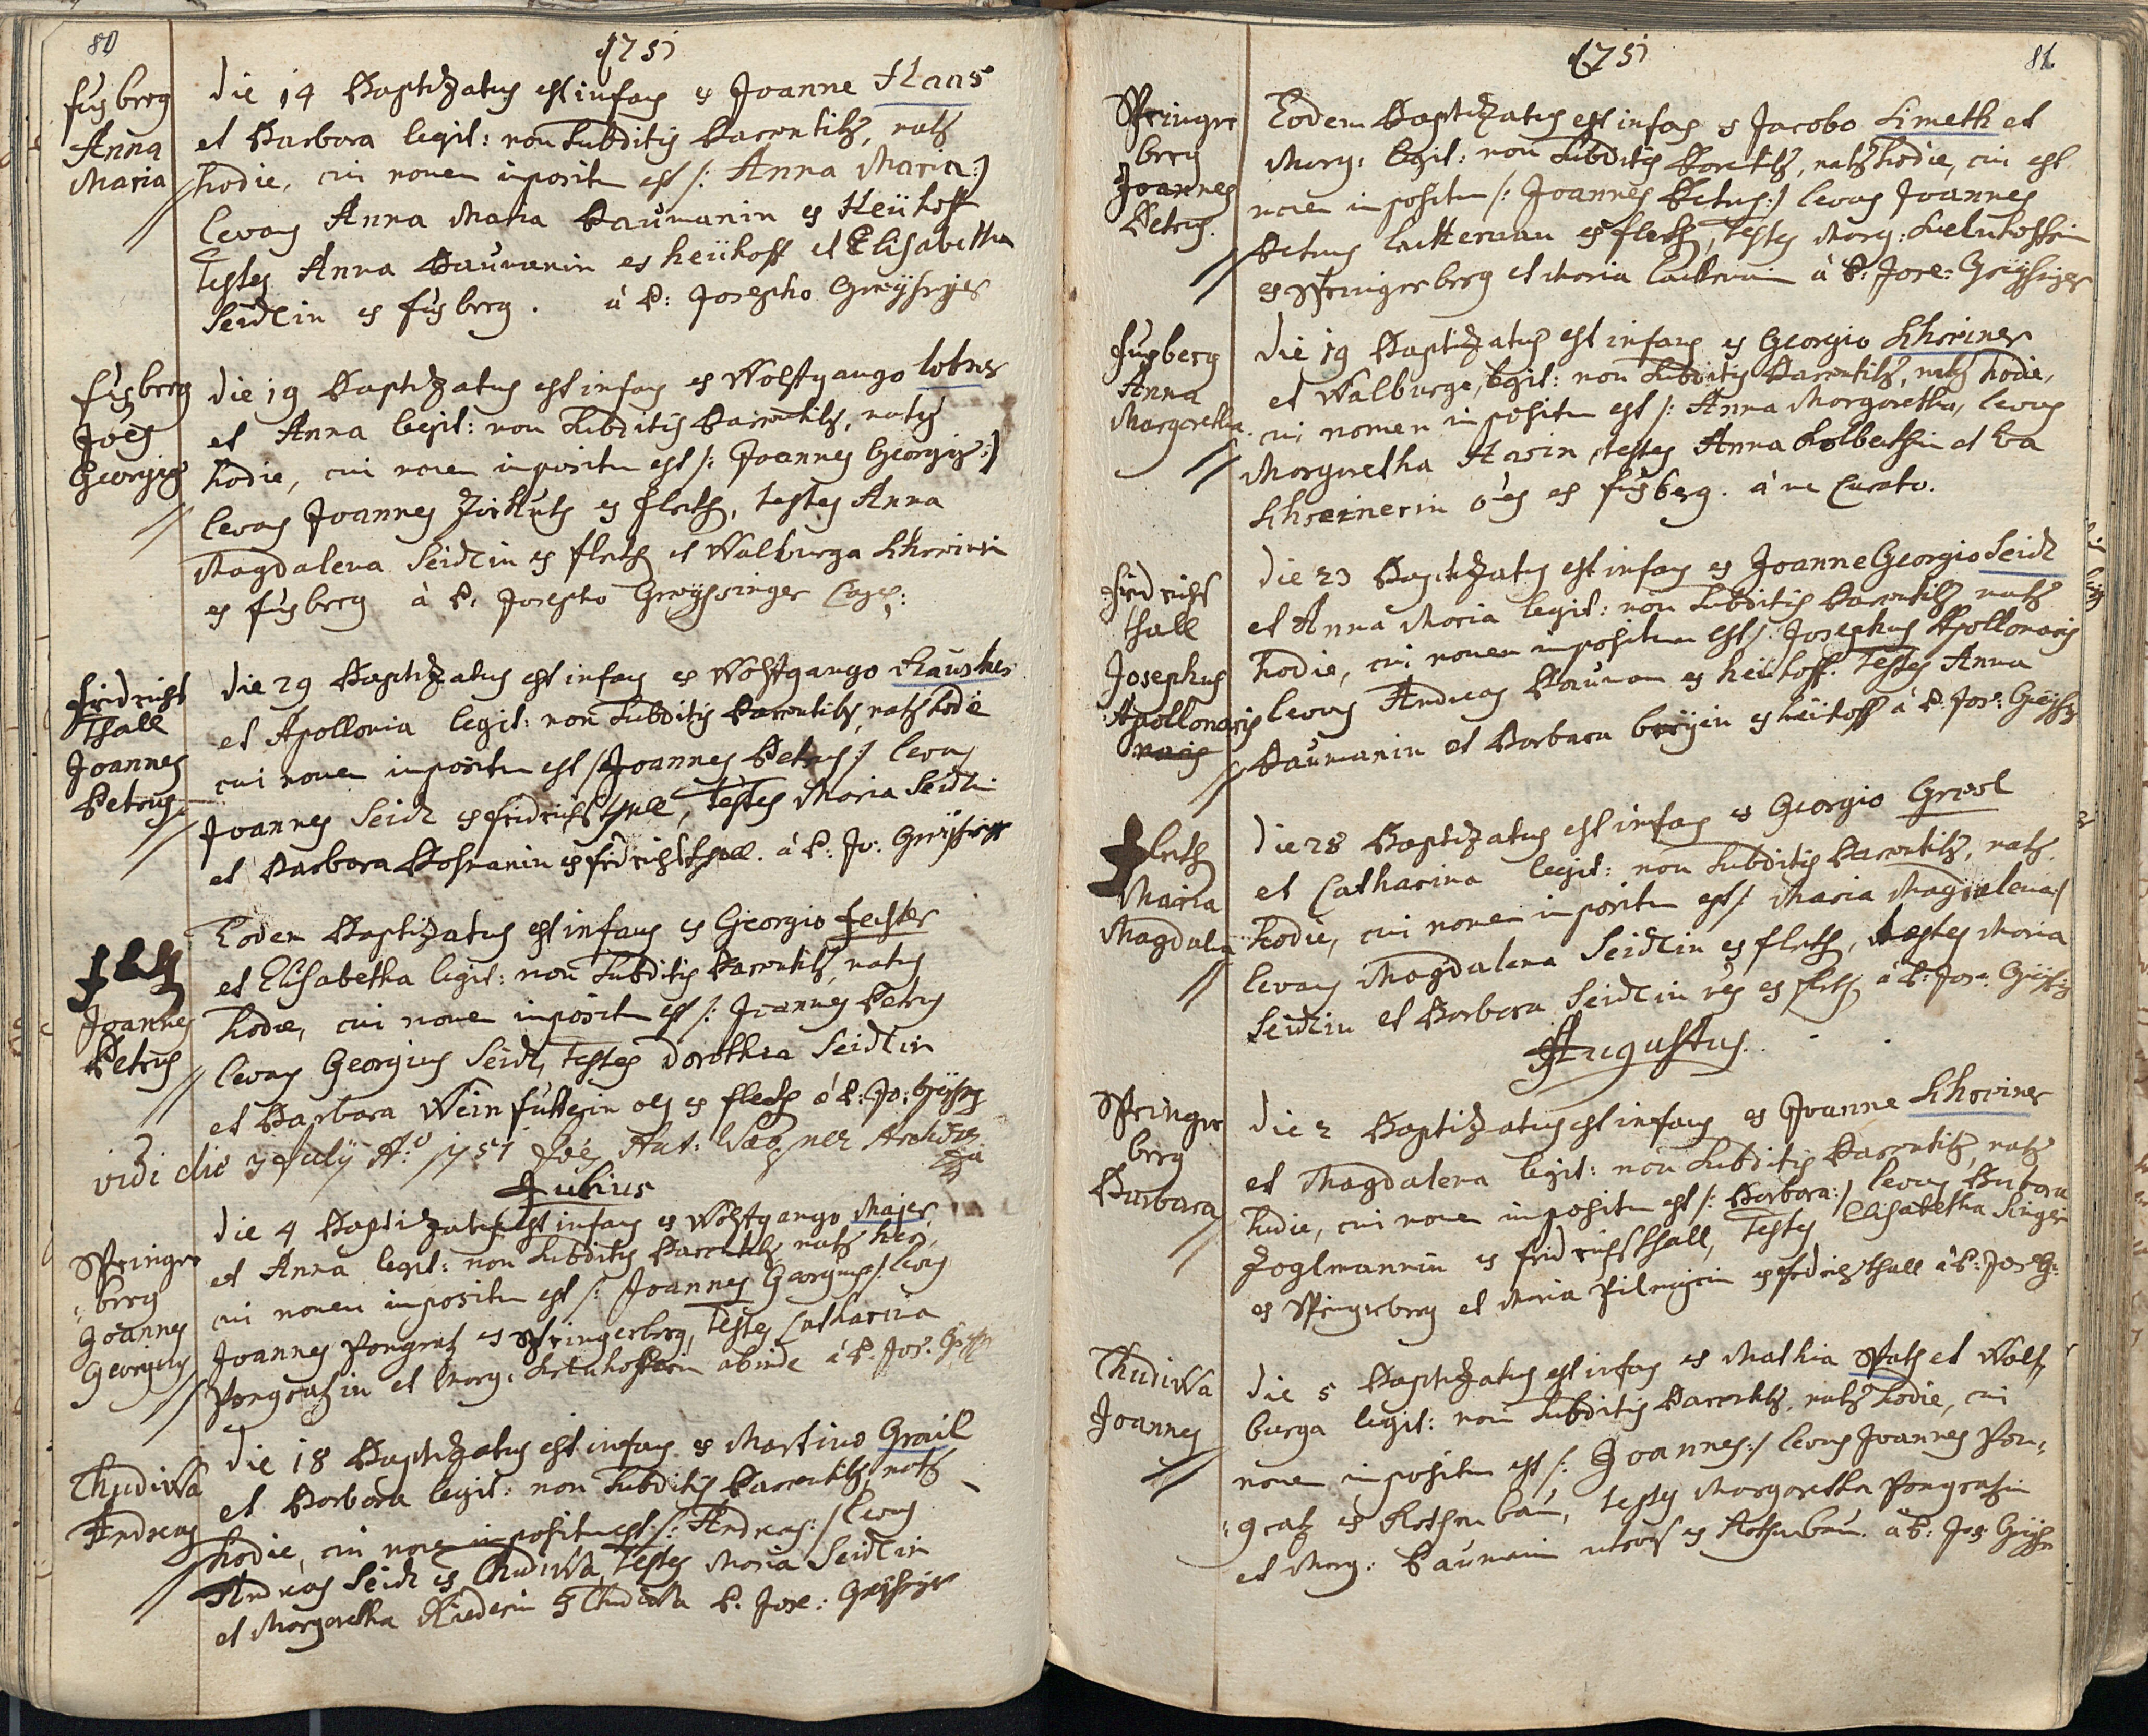 80
1751
fusberg
Anna
Maria
die 14 Baptizatus est infans ex Joanne Haas
et Barbara legit: non subditis Parentibus, natus
hodie, cui nomen impositum est /: Anna Maria:/
levans Anna Maria Baumanin ex Heükoff
testes Anna Baumanin ex heükoff et Elisabetha
Seidlin ex fusberg. à P: Josepho Greyssinger
fusberg
Joes
Georgius
die 19 Baptizatus est infans ex Wolfgango lobner
et Anna legit: non subditis Parentibus, natus
hodie, cui nomen impositum est /: Joannes Georgius:/
levans Joannes ex fleth, testes Anna
Magdalena Seidlin ex fleth et Walburga Schreinerin
ex fusberg à P. Josepho Greyssinger Cap:
fridrichs
thall
Joannes
Petrus
die 29 Baptizatus est infans ex Wolfgango Rauscher
et Apollonia legit: non subditis Parentibus, natus hodie
cui nomen impositum est /: Joannes Petrus:/ levans
Joannes Seidl ex fridrichsthall, testes Maria Seidlin
et Barbara ex fridrichsthall. à P: Jo: Greyssinger
fleth
Joannes
Petrus
Eodem Baptizatus est infans ex Georgio fechter
et Elisabetha legit: non subditis Parentibus, natus
hodie, cui nomen impositum est /: Joannes Petrus
levans Georgius Seidl, testes Dorothea Seidlin
et Barbara Weinfutterin ex fleth à P: Jo: Greyssing
vidi die 3 July Ao 1751 Joes Ant: Wagner Archid
Julius
Springer
berg
Joannes
Georgius
die 4 Baptizatus est infans ex Wolfgango Majer
et Anna legit: non subditis Parentibus natus heri,
cui nomen impositum est /: Joannes Georgius:/ levans
Joannes Pongratz ex Springerberg, testes Catharina
Pongratzin et Marg: abinde à P. Jos: Greyss
Chudiwa
Andreas
die 18 Baptizatus est infans ex Martino Grail
et Barbara legit: non subditis Parentibus, natus
hodie, cui nomen impositum est /: Andreas:/ levans
Andreas Seidl ex Chudiwa, testes Maria Seidlin
et Margaretha Riederin ex Chudiwa P. Jose: Greyssinger
1751
81
Springer
berg
Joannes
Petrus.
Eodem Baptizatus est infans ex Jacobo Limeth et
Marg: legit: non subditis Parentibus, natus hodie, cui est
nomen impositum /: Joannes Petrus:/ levans Joannes
Petrus ex fleth, testes Marg:
ex Springerberg et Maria à P: Jose: Greyssinger
fusberg
Anna
Margaretha
die 19 Baptizatus est infans ex Georgio Schreiner
et Walburga, legit: non subditis Parentibus, natus hodie,
cui nomen impositum est /: Anna Margaretha, levans
Margaretha Hasin, testes Anna Kolbethin et Eva
Schreinerin oes ex fusberg. à me Curato.
fridrichs
thall
Josephus
Apollonaris
naris
die 23 Baptizatus est infans ex Joanne Georgio Seidl
et Anna Maria legit: non subditis Parentibus natus
hodie, cui nomen impositum est /: Josephus Apollonaris
levans Andreas Bauman ex heükoff. testes Anna
Baumanin et Barbara ex heükoff à P. Jos: Greyss
fleth
Maria
Magdalena
die 28 Baptizatus est infans ex Georgio Griesl
et Catharina legit: non subditis Parentibus, natus
hodie, cui nomen impositum est /: Maria Magdalena/
levans Magdalena Seidlin ex fleth, testes Maria
Seidlin et Barbara Seidlin ex fleth à P: Jos: Greyssing
Augustus.
Springer
berg
Barbara
die 2 Baptizatus est infans ex Joanne Schreiner
et Magdalena legit: non subditis Parentibus, natus
hodie, cui nomen impositum est /: Barbara:/ levans Barbara
Zoglmannin ex fridrichsthall, testes Elisabetha Singerin
ex Springerberg et Maria ex fridrichsthall à P: Jos G:
Chudiwa
Joannes
die 5 Baptizatus est infans ex Mathia Spatz et Wal
burga legit: non subditis Parentibus, natus hodie, cui
nomen impositum est /: Joannes:/ levans Joannes Pon:
:gratz ex Rothenbau, testes Margaretha Pongratzin
et Marg: Baumanin ex Rothenbau. à P: Jos Greyss